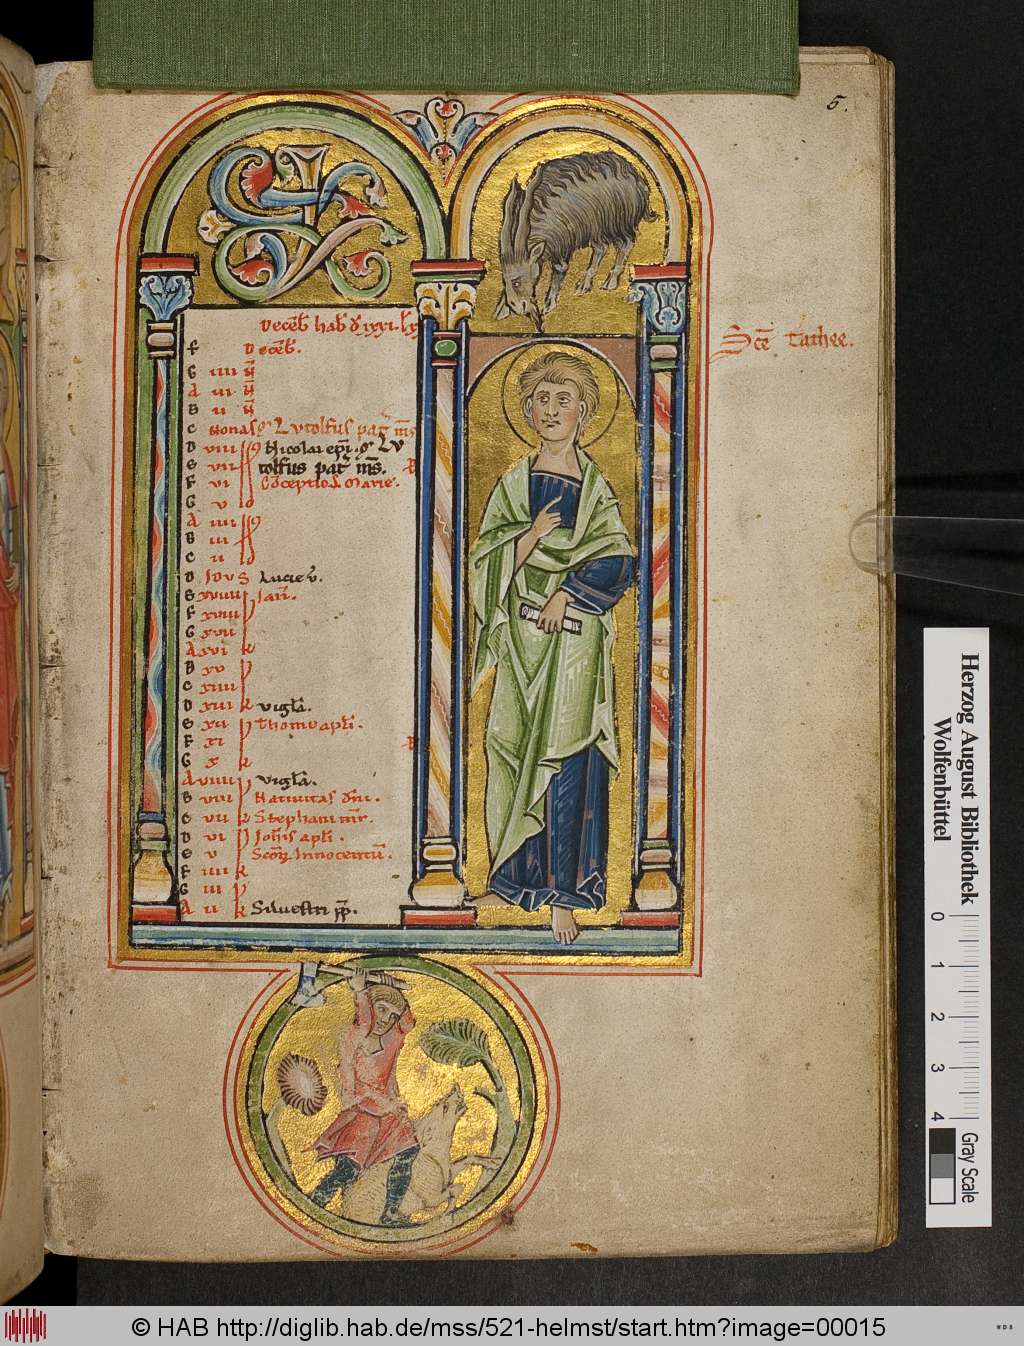 5.
KL
Deceb̄. hab̄ d̄ xxxi. l̄ xx
F Deceb̄.
G iiii N̄
A iii N̄
B ii N̄
C Nonas Lutolfus pat̄ m̄s
D viii Nicolai ep̄i. Lu
E vii tolfus pat̄ m̄s.
F vi Cōceptio. Marie.
G v id
A iiii
B iii
C ii id
D Idus Lucie v̄.
E xviiii Ian̄.
F xviii
G xvii
A xvi k
B xv
C xiiii
D xiii k vigl̄a.
E xii Thome apl̄i.
F xi
G x k
A viiii vigl̄a.
B viii Nativitas dn̄i.
C vii k Stephani m̄r.
D vi Joh̄is apl̄i.
E v Sc̄oꝝ Innocentū.
F iiii k
G iii
A ii k Silvestri p̄p.
Sc̄e Tathee.
Herzog August Bibliothek
Wolfenbüttel
0 1 2 3 4
Gray Scale
© HAB http://diglib.hab.de/mss/521-helmst/start.htm?image=00015